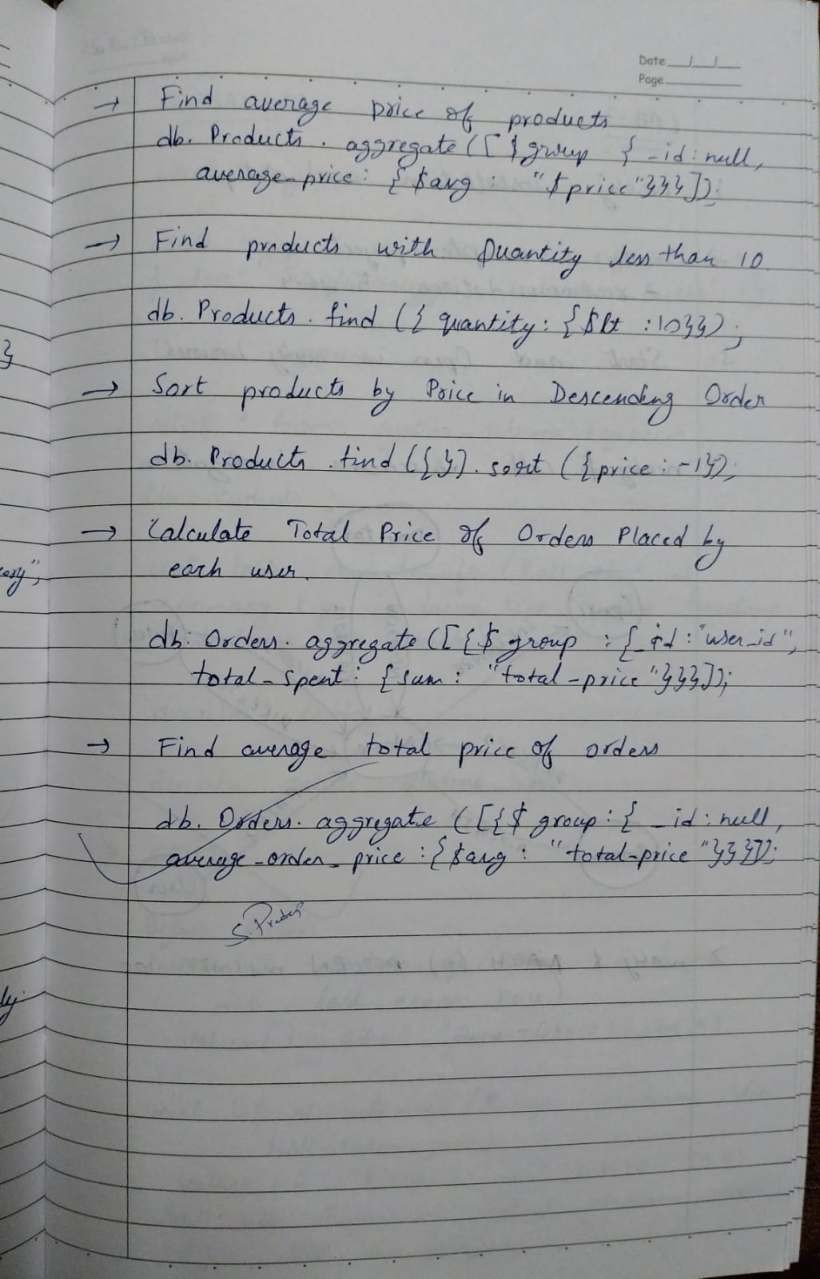 Date __/__/__
Page
→ Find average price of products
db. Products . aggregate ([ $group { _id : null,
average_price : { $avg : "$price"}}}]);
→ Find products with Quantity less than 10
db. Products . find ({ quantity : { $lt : 10}});
}
→ Sort products by Price in Descending Order
db. Products . find ({ }) . sort ({ price : -1});
→ Calculate Total Price of Orders Placed by
each user.
db. Orders . aggregate ([{ $ group : { _id : "user_id",
total_spent : { sum : "total_price"}}}]);
→ Find average total price of orders
db. Orders . aggregate ([{ $ group : { _id : null,
average_order_price : { $avg : "total_price"}}}]);
ly.